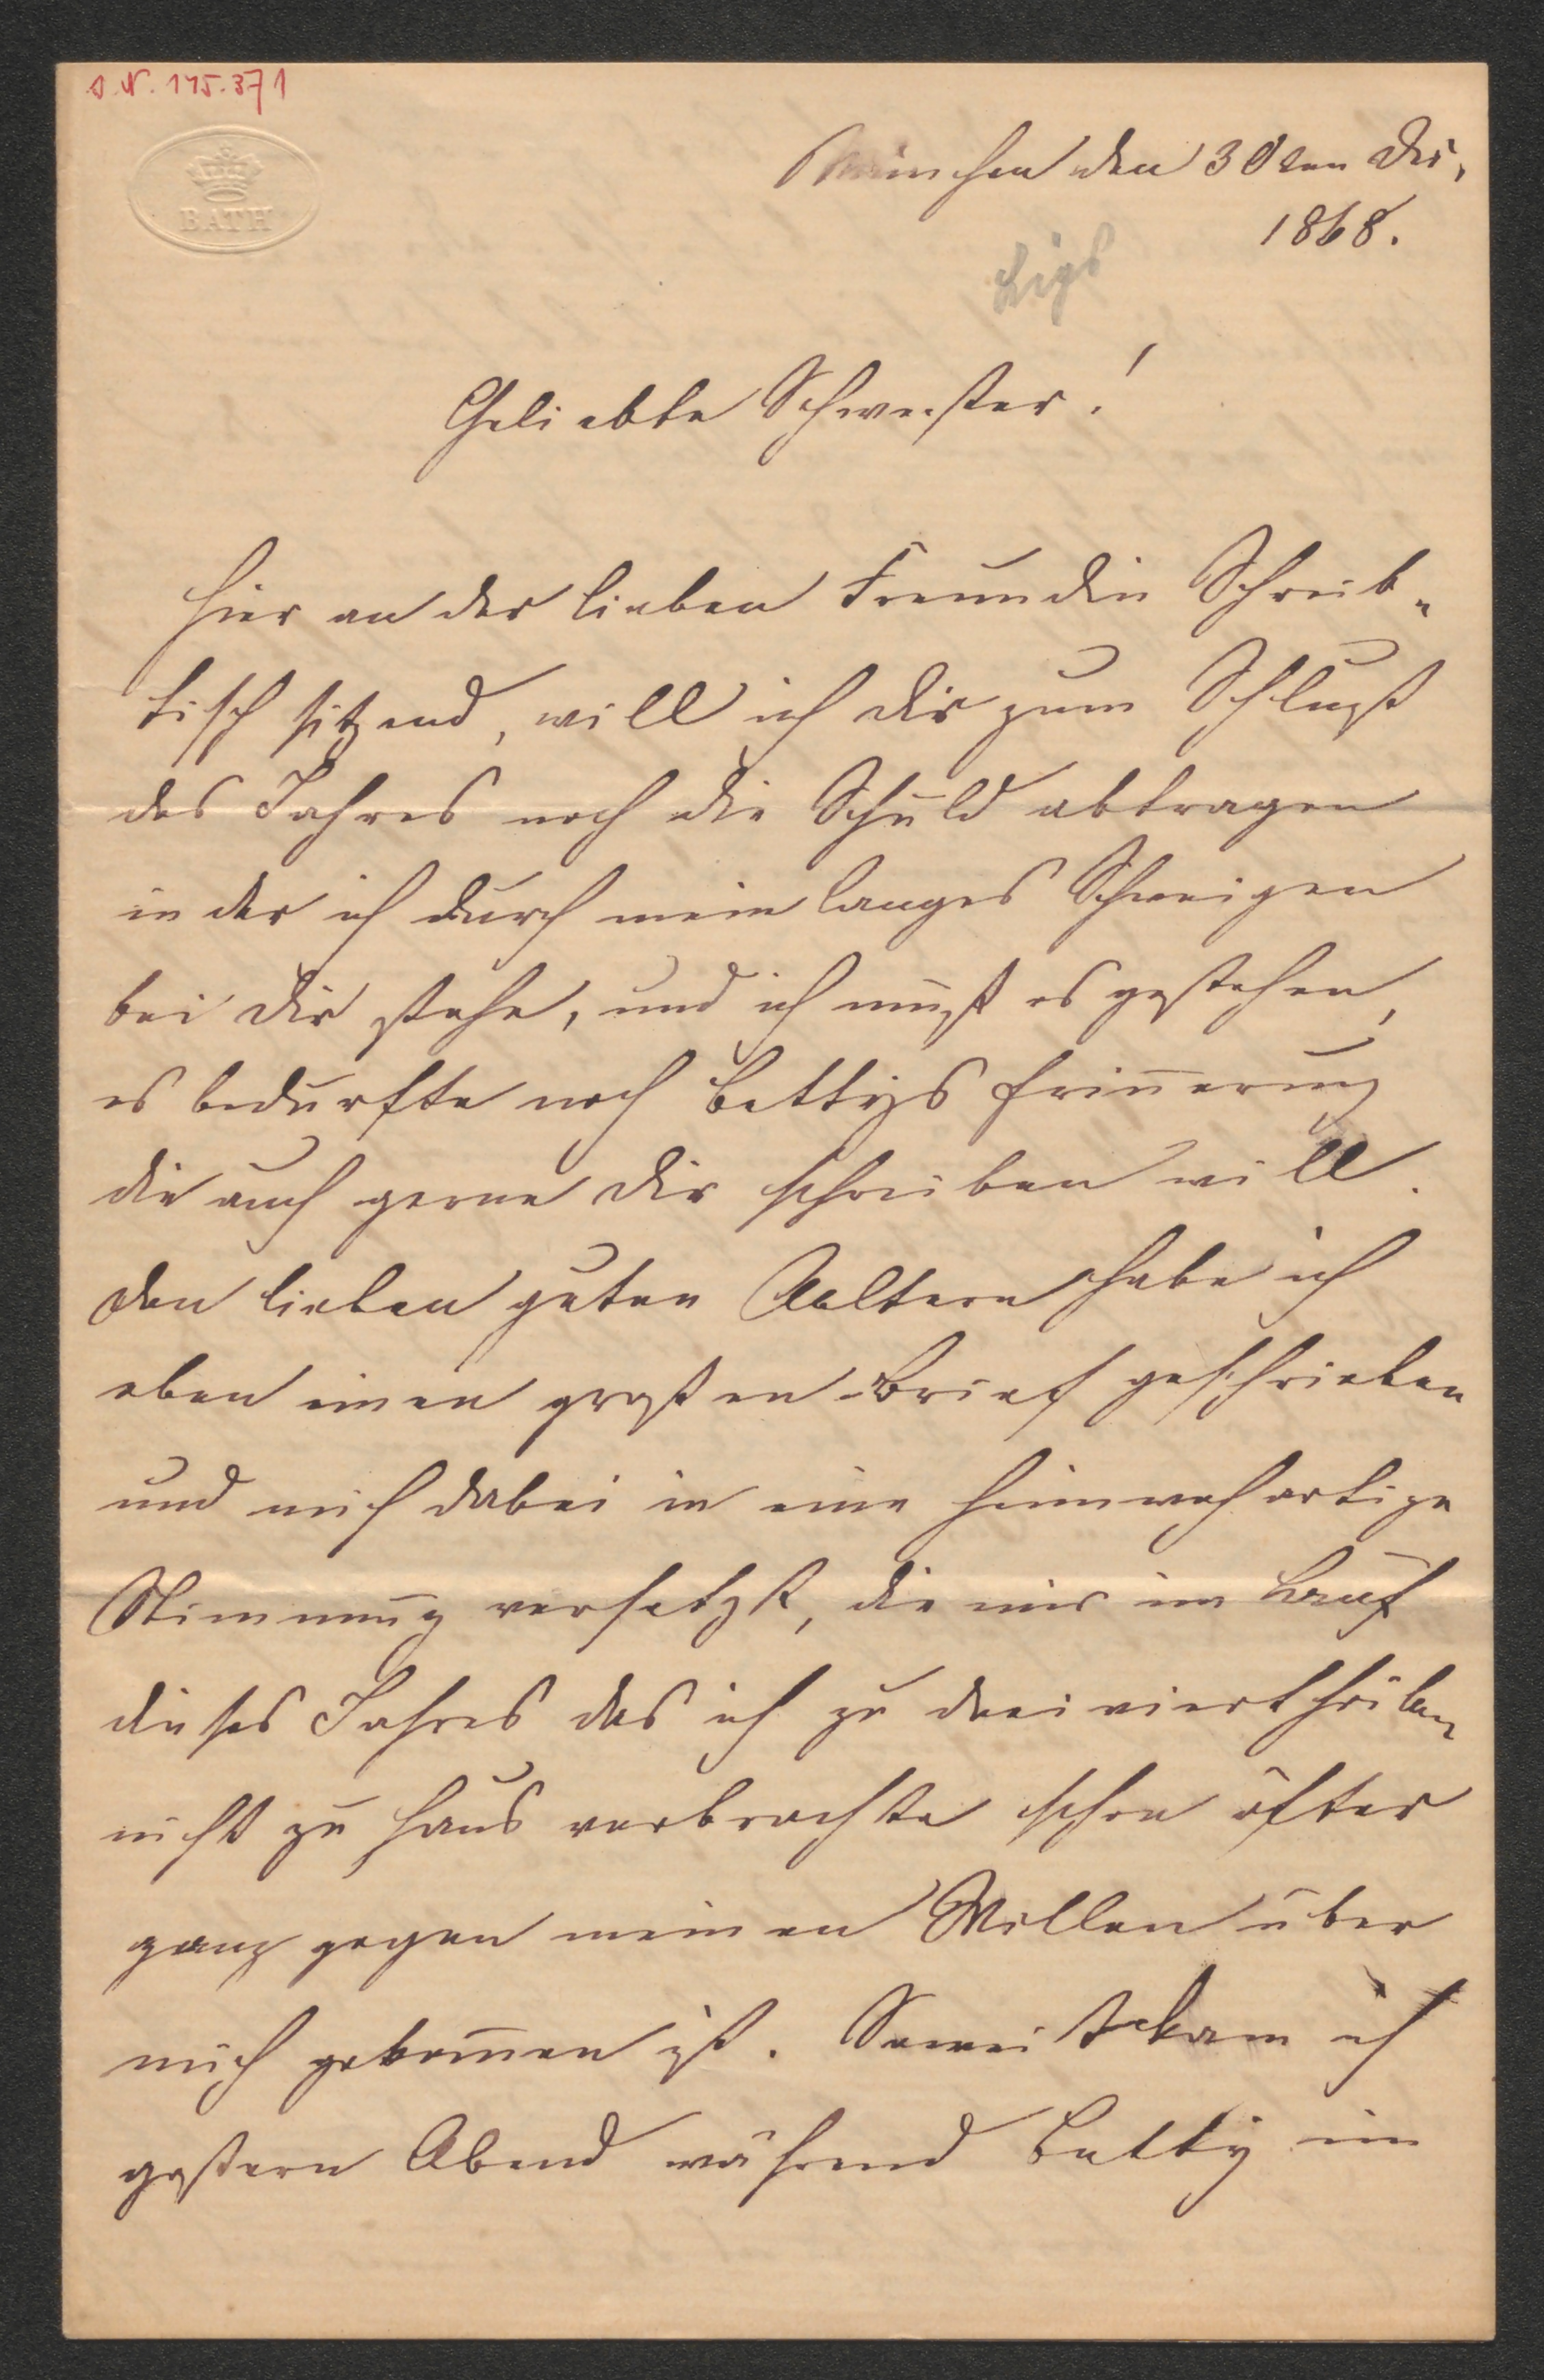 I.N. 175.371
BATH
München den 30ten Dez.
1868.
Geliebte Schwester!
Hier an der lieben Freundin Schreib-
tisch sitzend, will ich dir zum Schluße
des Jahres noch die Schuld abtragen
in der ich durch mein langes Schweigen
bei dir stehe, und ich muß es gestehen,
es bedurfte noch Bettys Erinnerung
die auch gerne dir schreiben will.
Den lieben guten Aeltern habe ich
eben einen großen Brief geschrieben
und mich dabei in eine heimwehartige
Stimmung versetzt, die mir im Lauf
dieses Jahres das ich zu dreiviertheilen
nicht zu Haus verbrachte schon öfter
ganz gegen meinen Willen über
mich gekom̄en ist. Soweit kam ich
gestern Abend während Betty im